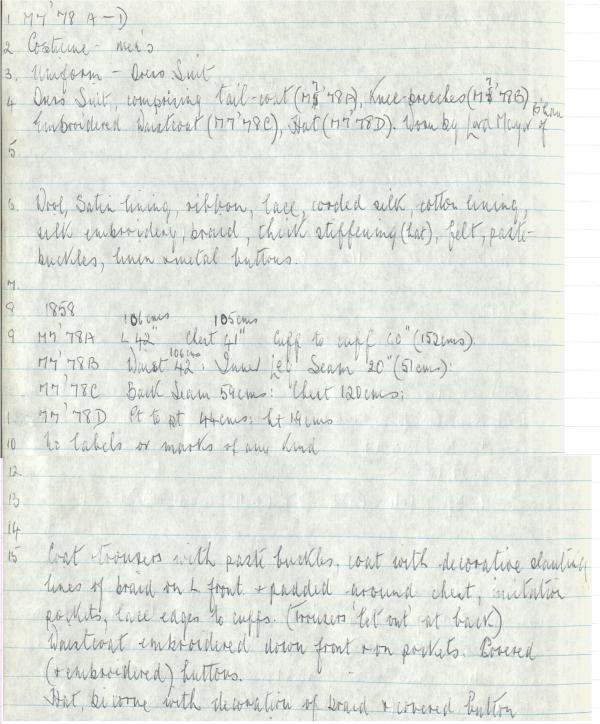 1 M7'78 A-D
2 Costume - men's
3. Uniform - Dress Suit
4 Dress Suit, comprising tail-coat (M7'78A), Knee-breeches (M7'78B)
Embroidered Waistcoat (M7'78C), Hat (M7'78D). Worn by Lord Mayor of
5
6. Wool, Satin lining, ribbon, lace, corded silk, cotton lining,
silk embroidery, braid, thick stiffening (hat), felt, paste-
buckles, linen & metal buttons.
7.
8 1858
106cms 105cms
9 M7'78A L 42" Chest 41" Cuff to cuff 60" (152cms).
106cms
M7'78B Waist 42": Inner Leg Seam 20" (51cms):
M7'78C Back Seam 59cms: Chest 120cms:
1 M7'78D Pt to pt 44cms: ht 19cms
10 No labels or marks of any kind
12.
13
14
15 Coat & trousers with paste buckles, coat with decorative slanting
lines of braid on L front & padded around chest, imitation
pockets, lace edges to cuffs. (Trousers 'let out' at back)
Waistcoat embroidered down front & on pockets. Covered
(& embroidered) buttons.
Hat, bicorne with decoration of braid & covered button